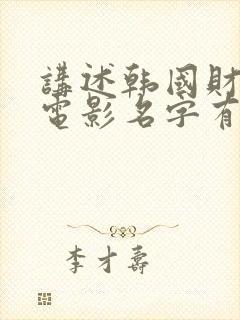 講述韩國財
電影名字有
李才壽